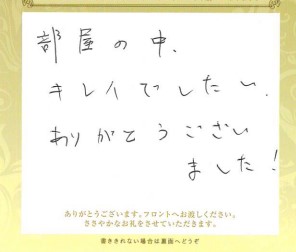 部屋の中、
キレイでしたい、
ありがとうござい
ました!
ありがとうございます。フロントへお渡しください。
ささやかなお礼をさせていただきます。
書ききれない場合は裏面へどうぞ